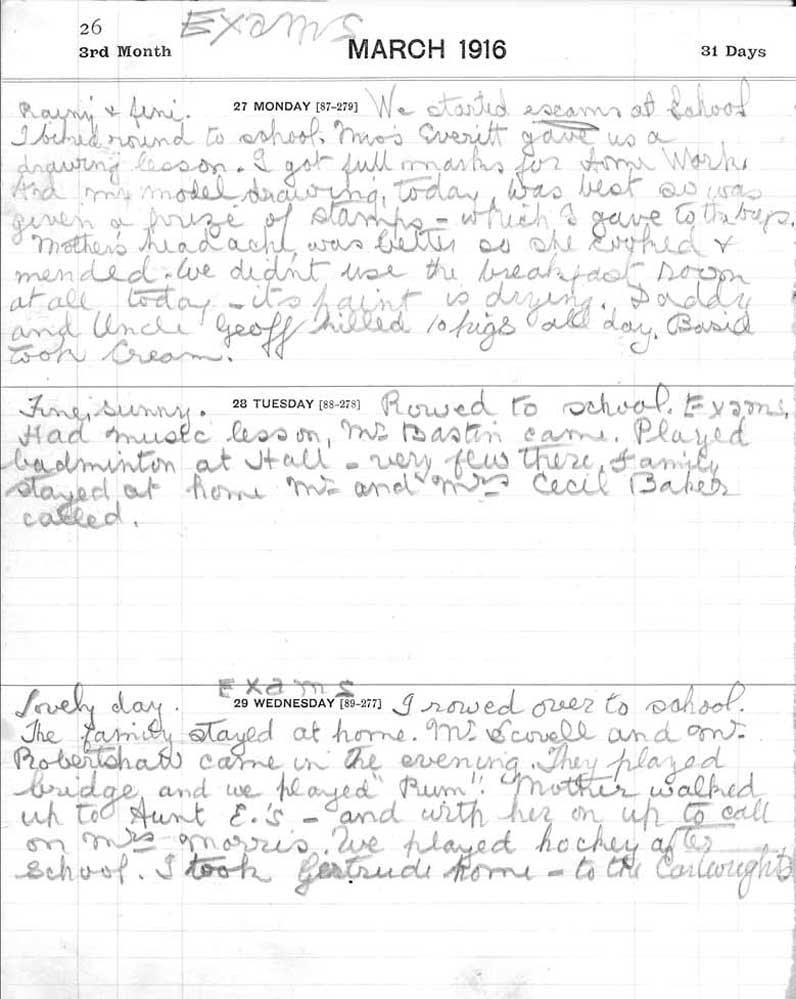 26 Exams
3rd Month MARCH 1916 31 Days
Rainy & fine. 27 MONDAY [87-279] We started exams at School
I biked round to school. Miss Everitt gave us a
drawing lesson. I got full marks for Home Work
And my model drawing, today, was best so was
given a prize of stamps - which I gave to the boys.
Mother's headache was better so she cooked &
mended. We didn't use the breakfast room
at all today - its paint is drying. Daddy
and Uncle Geoff killed 10 pigs all day. Basil
took Cream.
Fine, sunny. 28 TUESDAY [88-278] Rowed to school. Exams.
Had music lesson, Mr Bastin came. Played
badminton at Hall - very few there. Family
stayed at home Mr and Mrs Cecil Baker
called.
Exams
Lovely day. 29 WEDNESDAY [89-277] I rowed over to school.
The family stayed at home. Mr Scovell and Mr
Robertshaw came in the evening. They played
bridge and we played "Rum". Mother walked
up to Aunt E.'s - and with her on up to call
on Mrs Morris. We played hockey after
School. I took Gertrude home - to the Cartwrights